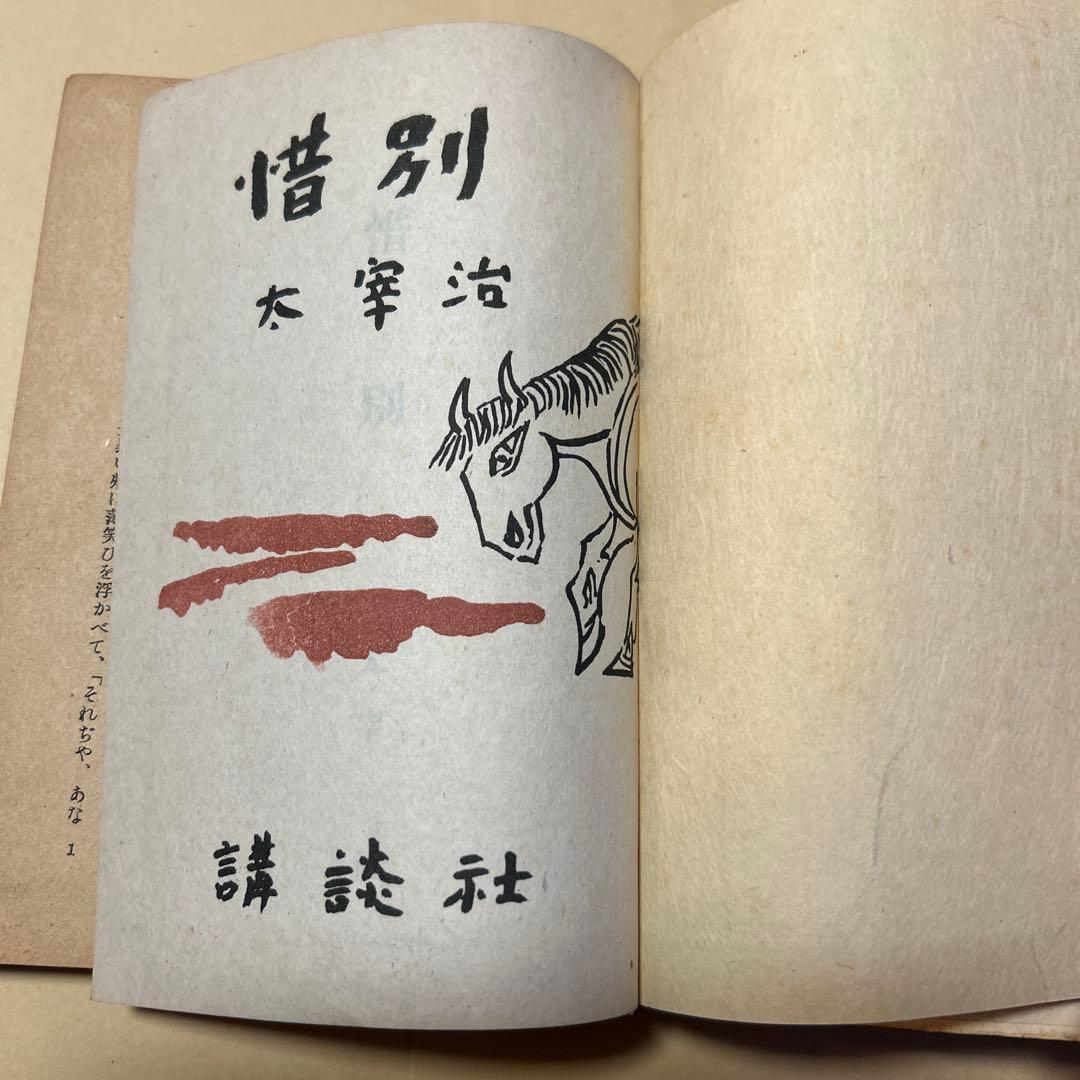 惜別
太宰治
講談社
笑ひを浮かべて、「それぢや、あな
1